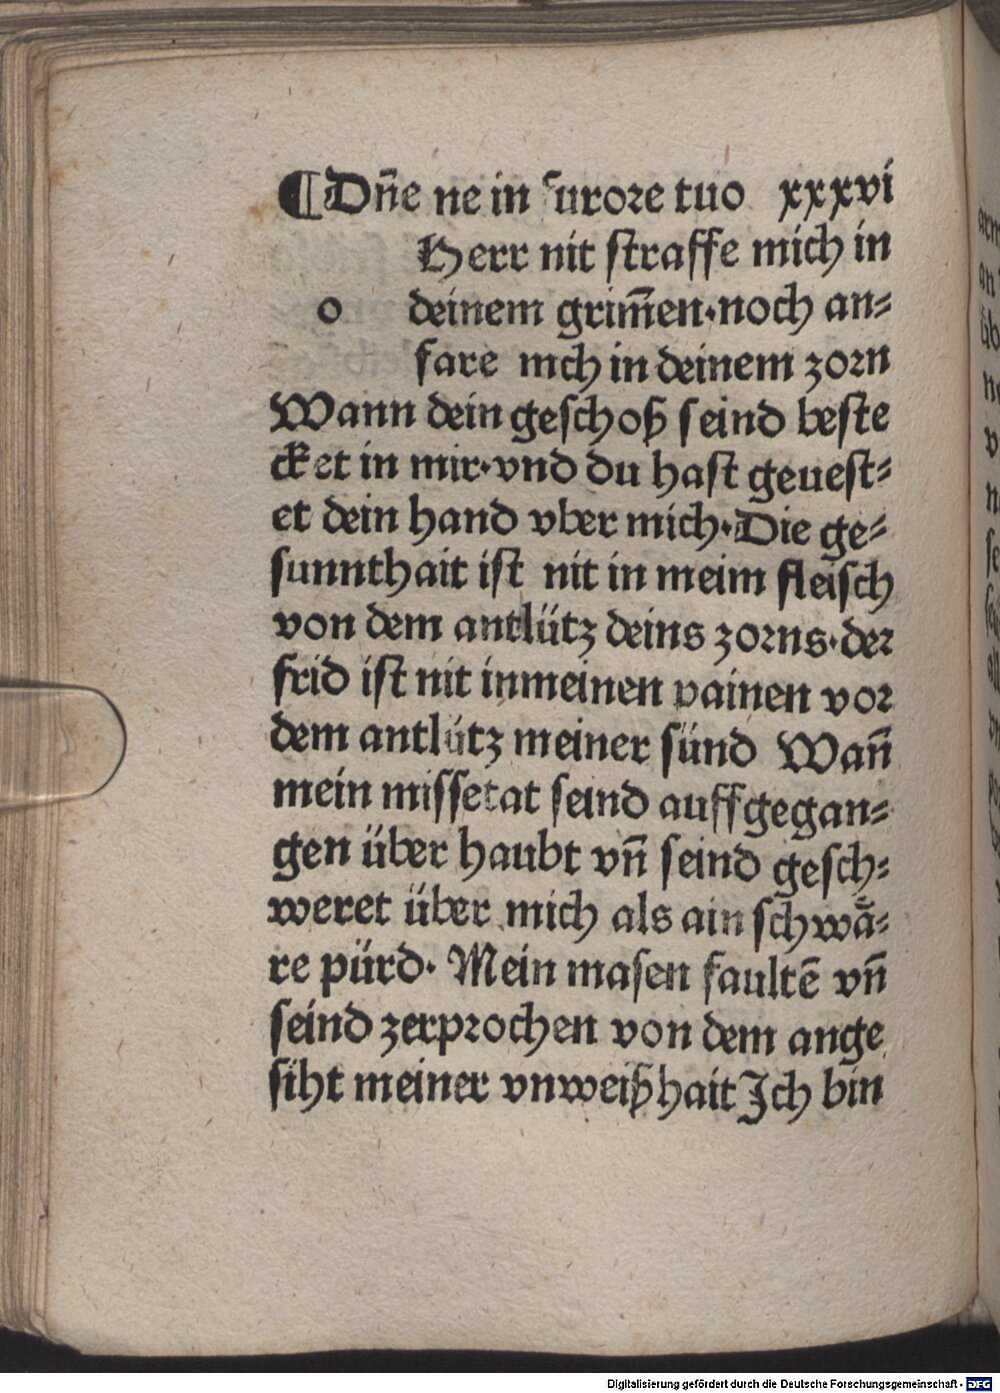 ¶Dñe ne in furore tuo xxxvi
Herr nit straffe mich in
o deinem grim̄en·noch an⸗
fare mch in deinem zorn
Wann dein geschoß seind beste
cket in mir·vnd du hast geuest⸗
et dein hand vber mich·Die ge⸗
sunnthait ist nit in meim fleisch
von dem antlütz deins zorns·der
frid ist nit inmeinen painen vor
dem antlütz meiner sünd Wañ
mein missetat seind auffgegan⸗
gen über haubt vñ seind gesch⸗
weret über mich als ain schwä⸗
re pürd· Mein masen faultē vñ
seind zerprochen von dem ange
siht meiner vnweißhait Ich bin
arm
an
Digitalisierung gefördert durch die Deutsche Forschungsgemeinschaft - DFG